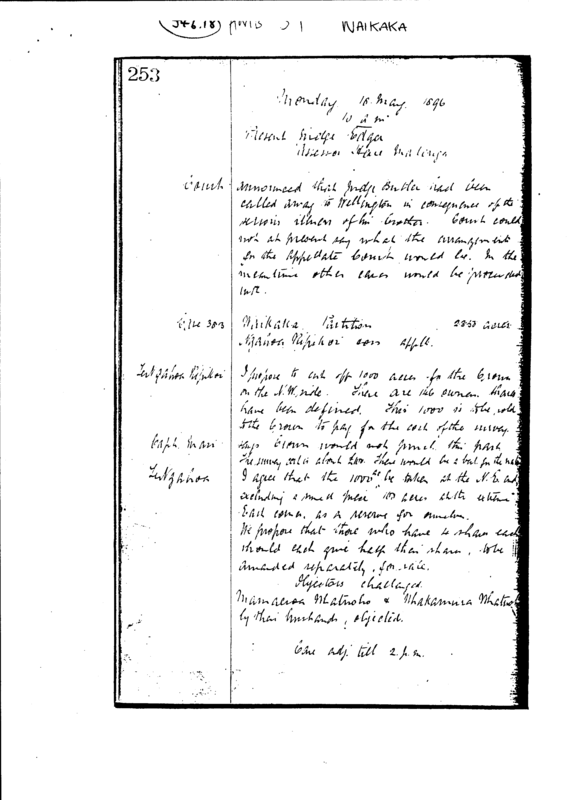 J46.18 WAIKAKA
253
Monday 18 May 1896
10 a.m.
Present Judge Edger
Assessor Hare Matenga
Court announced that Judge Butler had been
called away to Wellington in consequence of the
serious illness of his brother. Court could
not at present say what the arrangements
for the Appellate Court would be. In the
meantime other cases would be proceeded
with.
Case 303 Waikaka Partition acres
Ngahoa con appltt.
Ngahoa I propose to cut off 1000 acres for the Crown
on the N.W. side. There are owners shares
have been defined. This 1000 is to be sold
to the Crown to pay for the cost of the survey
Capt. Mair says Crown would not this part
The survey cost is about There would be a bal. for the
Te Ngahoa I agree that the 1000 ac be taken at the N.E. end
excluding a small piece acres at the extreme
East corner, as a reserve for ourselves.
We propose that those who have share each
should each give half their share, to be
awarded separately, for sale.
Objectors challenged.
& Whakamura
by their husbands, objected.
Case adj. till 2. p.m.